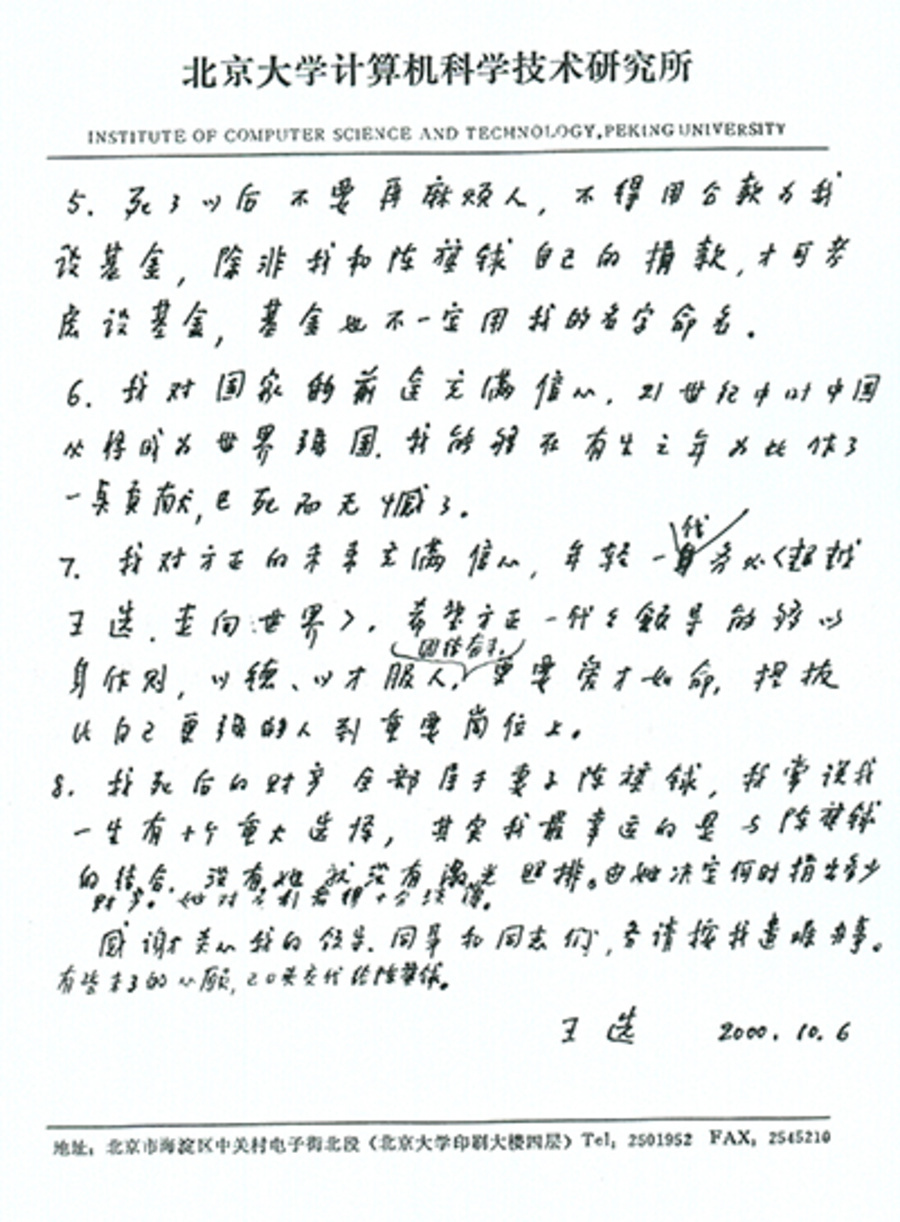 北京大学计算机科学技术研究所
INSTITUTE OF COMPUTER SCIENCE AND TECHNOLOGY,PEKING UNIVERSITY
5. 死了以后不要再麻烦人，不得用公款为我
设基金，除非我和陈堃銶自己的捐款，才可考
虑设基金，基金也不一定用我的名字命名。
6. 我对国家的前途充满信心，21世纪中叶中国
必将成为世界强国，我能够在有生之年为此作了
一点贡献，已死而无憾了。
7. 我对方正的未来充满信心，年轻一代务必“超越
王选，走向世界”。希望方正一代代领导能够以
团结奋斗，
身作则，以德、以才服人，更要爱才如命，提拔
比自己更强的人到重要岗位上。
8. 我死后的财产全部属于妻子陈堃銶，我常说我
一生有十个重大选择，其实我最幸运的是与陈堃銶
的结合，没有她就没有激光照排。由她决定何时捐出多少
财产。她对名利看得十分淡薄。
感谢关心我的领导、同事和同志们，务请按我遗嘱办事。
有些未了的心愿，已口头交代给陈堃銶。
王选 2000.10.6
地址：北京市海淀区中关村电子街北段（北京大学印刷大楼四层）Tel：2501952 FAX：2545210